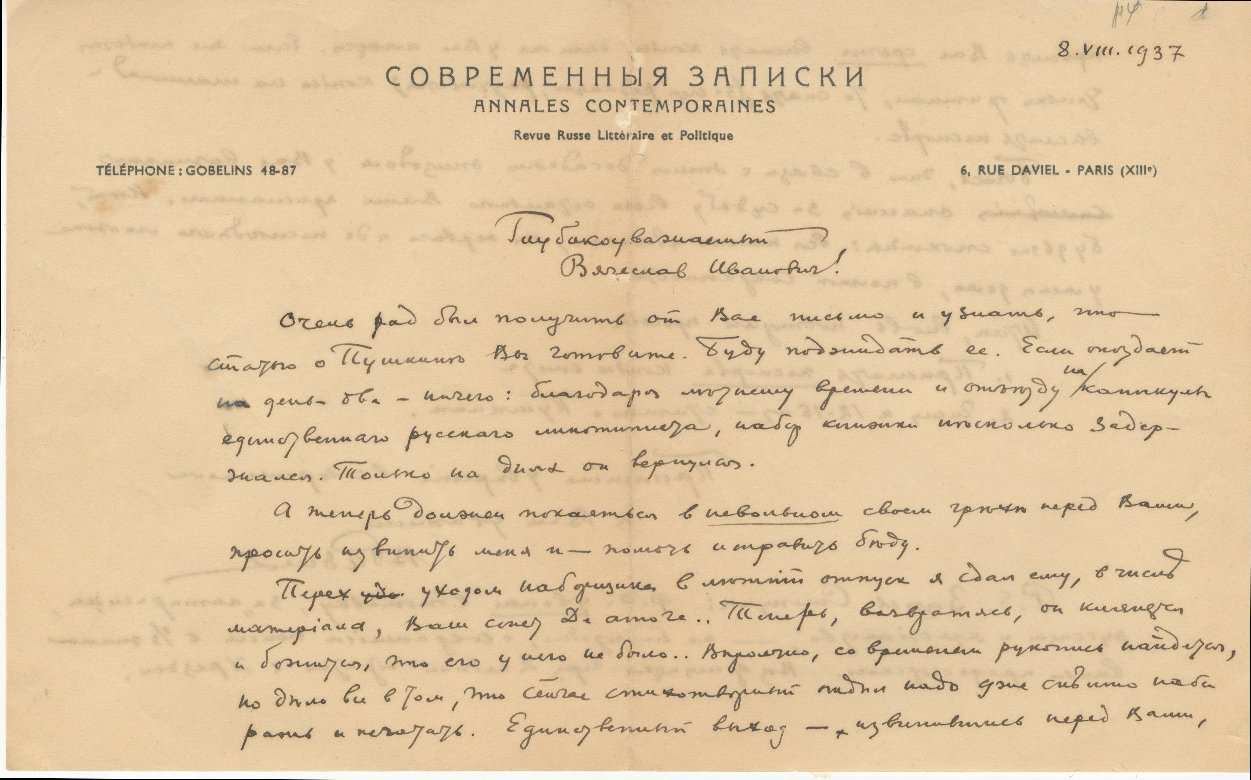 8.VIII.1937
СОВРЕМЕННЫЯ ЗАПИСКИ
ANNALES CONTEMPORAINES
Revue Russe Littéraire et Politique
TÉLÉPHONE : GOBELINS 48-87
6, RUE DAVIEL - PARIS (XIIIe)
Глубокоуважаемый
Вячеслав Иванович!
Очень рад был получить от Вас письмо и узнать, что
статью о Пушкине Вы готовите. Буду поджидать ее. Если опоздает
на день-два - ничего: благодаря летнему времени и отъезду на каникулы
единственнаго русскаго линотиписта, набор книжки несколько задер-
жался. Только на днях он вернулся.
А теперь должен покаяться в невольном своем грехе перед Вами,
просить извинить меня и — помочь исправить беду.
Перед уходом наборщика в летний отпуск я сдал ему, в числе
матерiала, Ваш сонет De amore.. Теперь, возвратясь, он клянется
и божится, что его у него не было.. Вероятно, со временем рукопись найдется,
но дело все в том, что сейчас стихотворный отдел надо уже спешно наби
рать и печатать. Единственный выход — извинившись перед Вами,